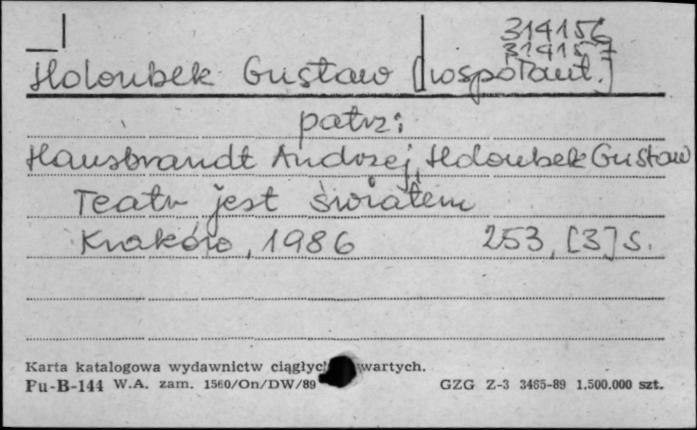 314156
314157
Holoubek Gustaw [współaut.]
patrz:
Hausbrandt Andrzej, Holoubek Gustaw
Teatr jest światem
Kraków, 1986 253, [3] s.
Karta katalogowa wydawnictw ciągłyc wartych.
Pu-B-144 W.A. zam. 1560/On/DW/89 GZG Z-3 3465-89 1.500.000 szt.